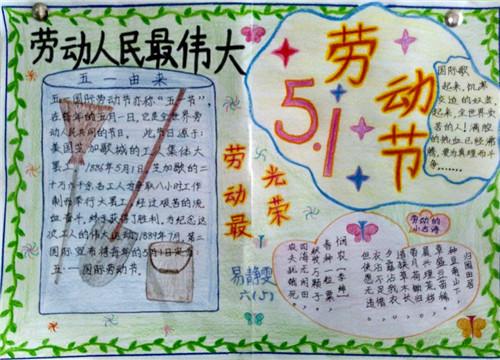 劳动人民最伟大
五一由来
五一国际劳动节亦称"五一节",
在每年的五月一日,它是全世界劳
动人民共同的节日。此节日源于
美国芝加哥城的工人集体大
罢工,1886年5月1日,芝加哥的二
十万六千余名工人为争取八小时工作
制而举行大罢工,经过艰苦的流
血奋斗,终于获得了胜利。为纪念这
次工人的伟大运动,1889年7月,第二
国际宣布将每年的5月1日定为
五一国际劳动节。
5.1
劳动节
国际歌
起来,饥寒
交迫的奴隶
起来,全世界受
苦的人!满腔
的热血已经沸
腾,要为真理而斗
争……
劳动最
光荣
易静雯
六(5)
劳动的
小古诗
归园田居
种豆南山下
草盛豆苗稀
晨兴理荒秽
带月荷锄归
道狭草木长
夕露沾我衣
衣沾不足惜
但使愿无违
悯农【李绅】
春种一粒粟
秋收万颗子
四海无闲田
农夫犹饿死